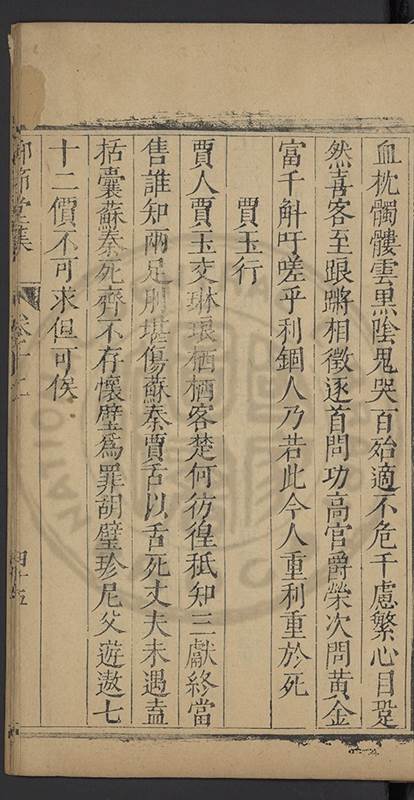 血枕髑髏雲黑陰鬼哭百殆適不危千慮繁心目跫
然喜客至踉蹡相徵逐首問功高官爵榮次問黃金
富千斛吁嗟乎利錮人乃若此今人重利重於死
賈玉行
賈人賈玉交琳琅栖栖客楚何彷徨秪知三獻終當
售誰知兩足刖堪傷蘇秦賈舌以舌死丈夫未遇盍
括囊蘇秦死齊不存懷璧爲罪胡璧珍尼父遊遨七
十二價不可求但可俟
節堂集 卷十二 四十五